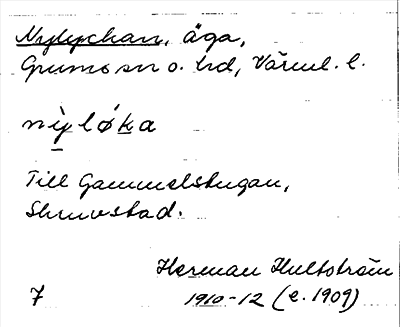 Nylyckan, äga,
Grums sn o. hd, Värml. l.
nỳløka
Till Gammelstugan,
Skruvstad.
Herman Hultström
7 1910-12 (e. 1909)